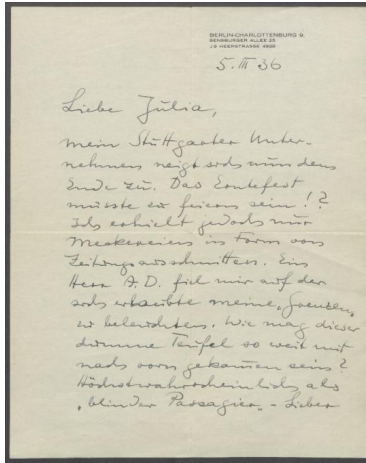 BERLIN-CHARLOTTENBURG 9,
SENSBURGER ALLEE 25
J 9 HEERSTRASSE 4926
5. III 36
Liebe Julia,
mein Stuttgarter Unter-
nehmen neigt sich nun dem
Ende zu. Das Erntefest
müsste zu feiern sein!?
Ich erhielt jedoch nur
Meckereien in Form von
Zeitungsausschnitten. Ein
Herr A.D. fiel mir auf der
sich erlaubte meine „Grenzen"
zu beleuchten. Wie mag dieser
dumme Teufel so weit mit
nach vorn gekommen sein?
Höchstwahrscheinlich als
„blinder Passagier". – Lieber